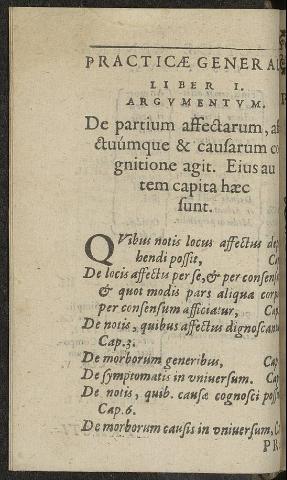 PRACTICÆ GENERAL
LIBER I.
ARGVMENTVM.
De partium affectarum, af
ctuúmque & causarum co
gnitione agit. Eius au
tem capita hæc
sunt.
QVibus notis locus affectus dep
hendi possit, Ca
De locis affectis per se, & per consens
& quot modis pars aliqua corp
per consensum afficiatur, Cap
De notis, quibus affectus dignoscant
Cap.3.
De morborum generibus, Cap
De symptomatis in vniuersum. Cap
De notis, quib. causæ cognosci poss
Cap.6.
De morborum causis in vniuersum, C
PR